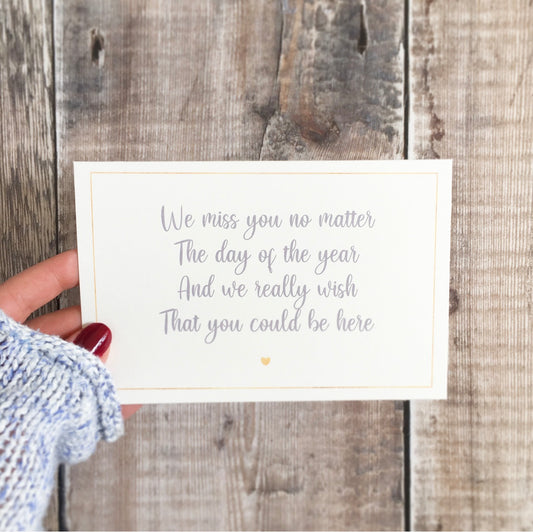 We miss you no matter
The day of the year
And we really wish
That you could be here